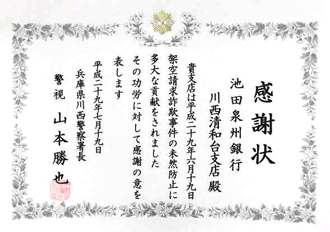 感謝状
池田泉州銀行
川西清和台支店 殿
貴支店は平成二十九年六月十九日
架空請求詐欺事件の未然防止に
多大な貢献をされました
その功労に対して感謝の意を
表します
平成二十九年七月十九日
兵庫県川西警察署長
警視 山本勝也